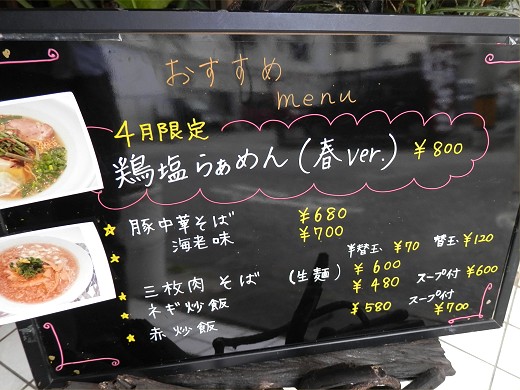 おすすめ
menu
4月限定
鶏塩らぁめん(春ver.) ¥800
豚中華そば ¥680
海老味 ¥700
半替玉 ¥70 替玉 ¥120
三枚肉そば (生麺) ¥600
ネギ炒飯 ¥480 スープ付 ¥600
赤炒飯 ¥580 スープ付 ¥700